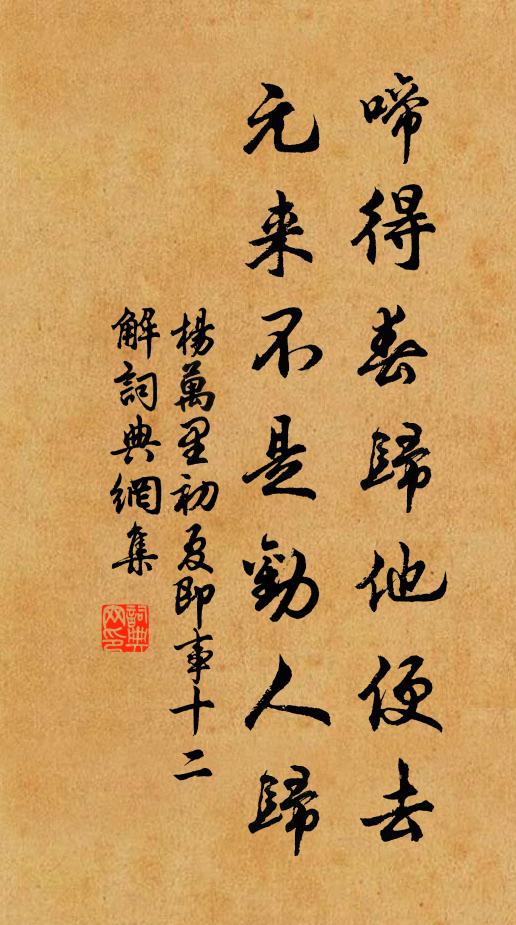 啼得春歸他便去
元来不是勸人歸
楊萬里初夏即事十二
解詞典網集
詞典網印